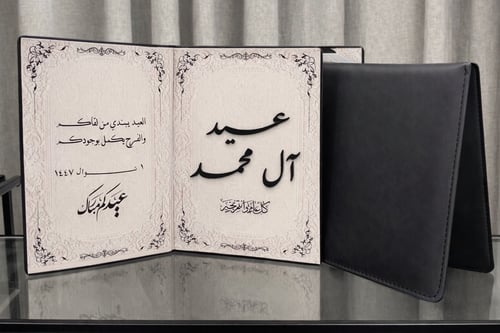 عيد
آل محمد
كل عام وانتم بخير
العيد يبتدي من لقاكم
والفرح يكمل بوجودكم
١ شوال ١٤٤٧
عيدكم مبارك